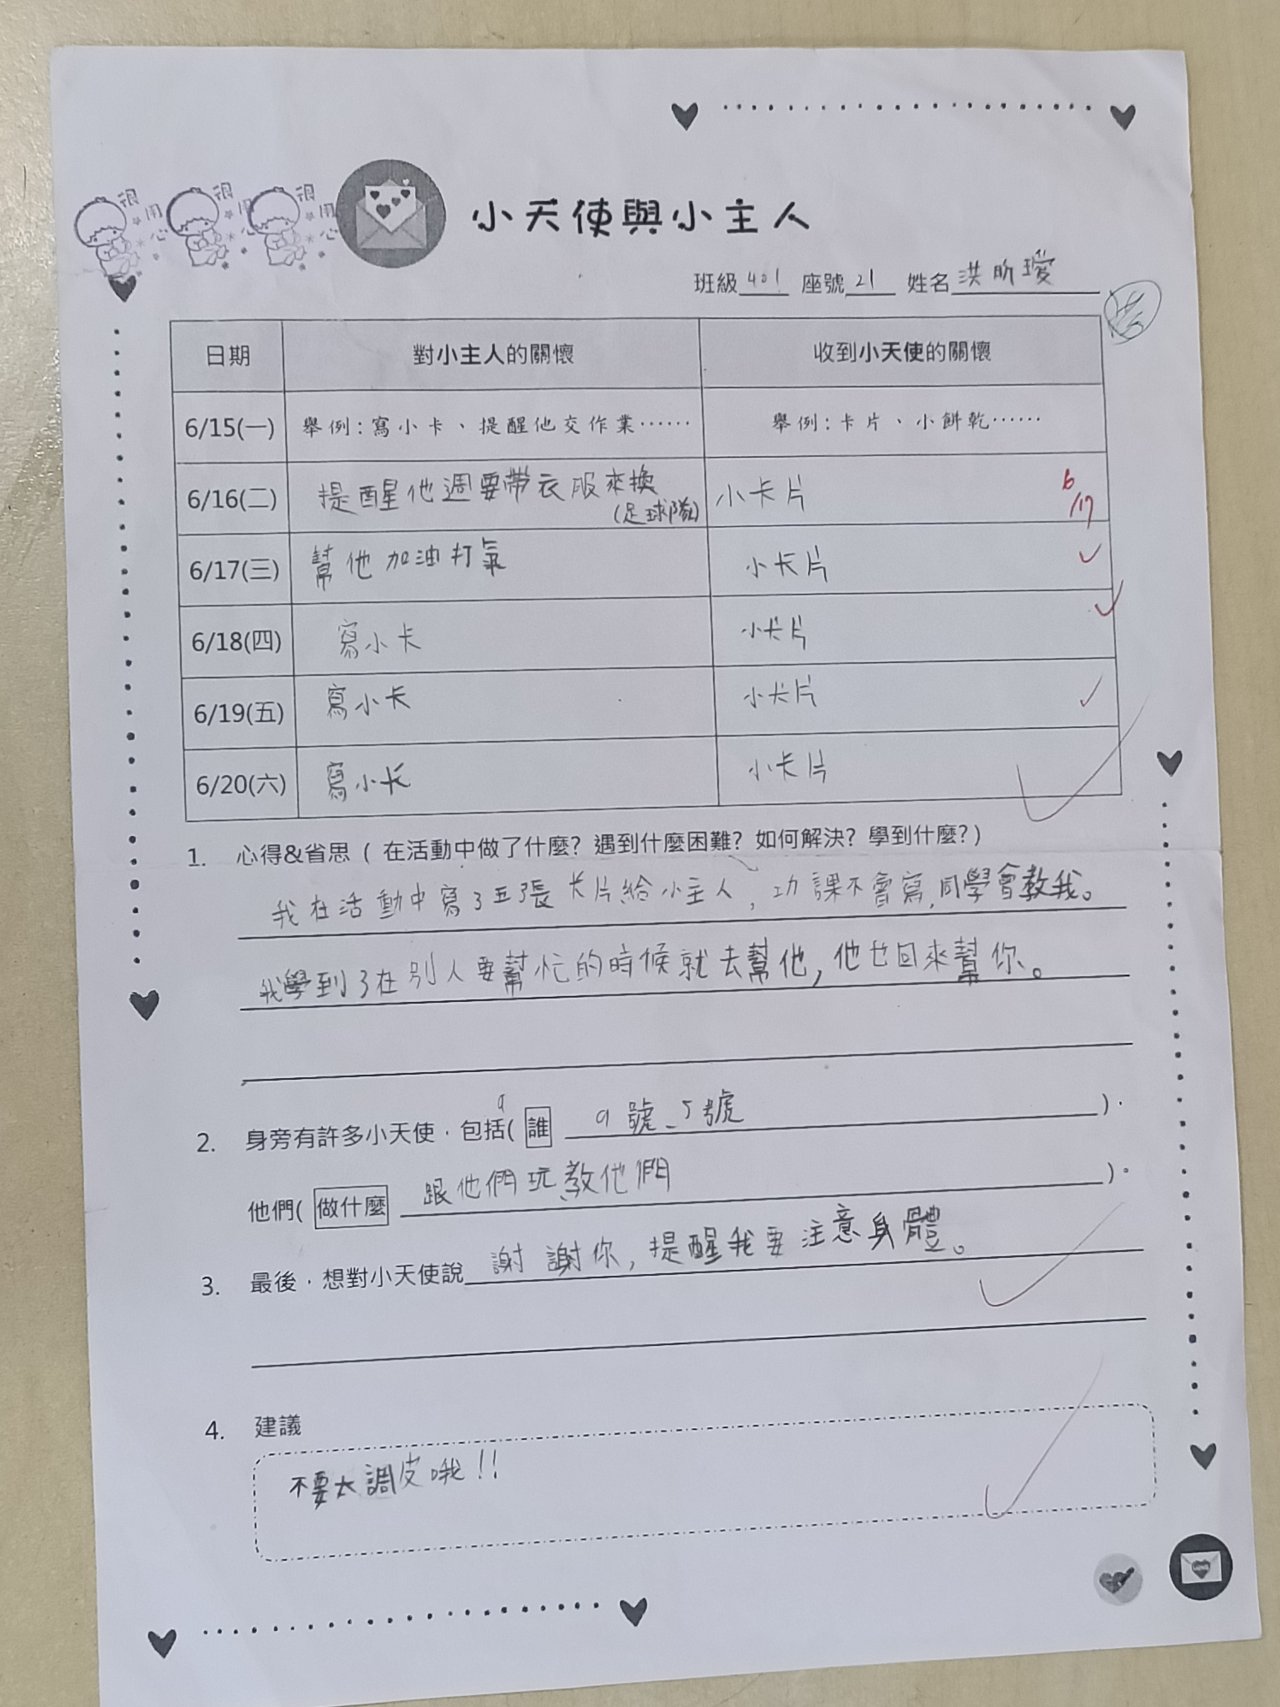 很用心 很用心 很用心
小天使與小主人
班級 401 座號 21 姓名 洪昕璦
日期 對小主人的關懷 收到小天使的關懷
6/15(一) 舉例:寫小卡、提醒他交作業…… 舉例:卡片、小餅乾……
6/16(二) 提醒他週要帶衣服來換 小卡片 6/17
(足球隊)
6/17(三) 幫他加油打氣 小卡片
6/18(四) 寫小卡 小卡片
6/19(五) 寫小卡 小卡片
6/20(六) 寫小卡 小卡片
1. 心得&省思 ( 在活動中做了什麼? 遇到什麼困難? 如何解決? 學到什麼? )
我在活動中寫了五張卡片給小主人,功課不會寫,同學會教我。
我學到了在別人要幫忙的時候就去幫他,他也回來幫你。
2. 身旁有許多小天使,包括( 誰 9號、5號 ),
他們( 做什麼 跟他們玩、教他們 )。
3. 最後,想對小天使說 謝謝你,提醒我要注意身體。
4. 建議
不要太調皮哦!!